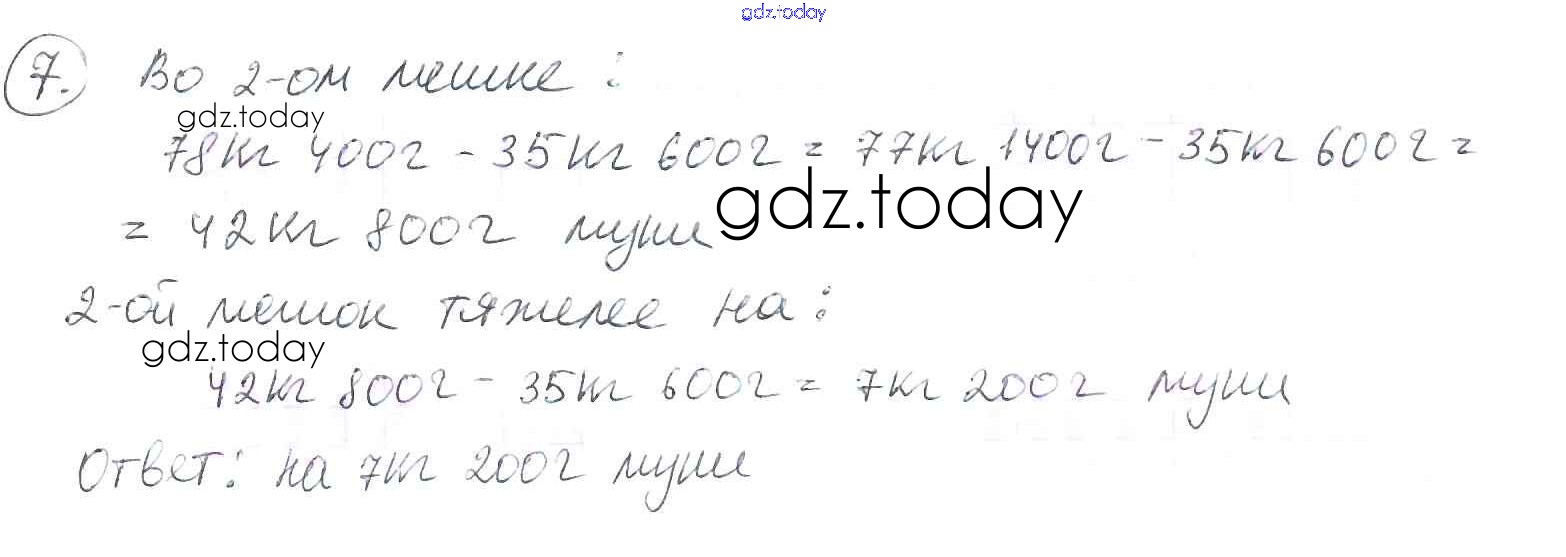 gdz.today
7. Во 2-ом мешке:
gdz.today
78кг 400г - 35кг 600г = 77кг 1400г - 35кг 600г =
gdz.today
= 42кг 800г муки
2-ой мешок тяжелее на:
gdz.today
42кг 800г - 35кг 600г = 7кг 200г муки
Ответ: на 7кг 200г муки